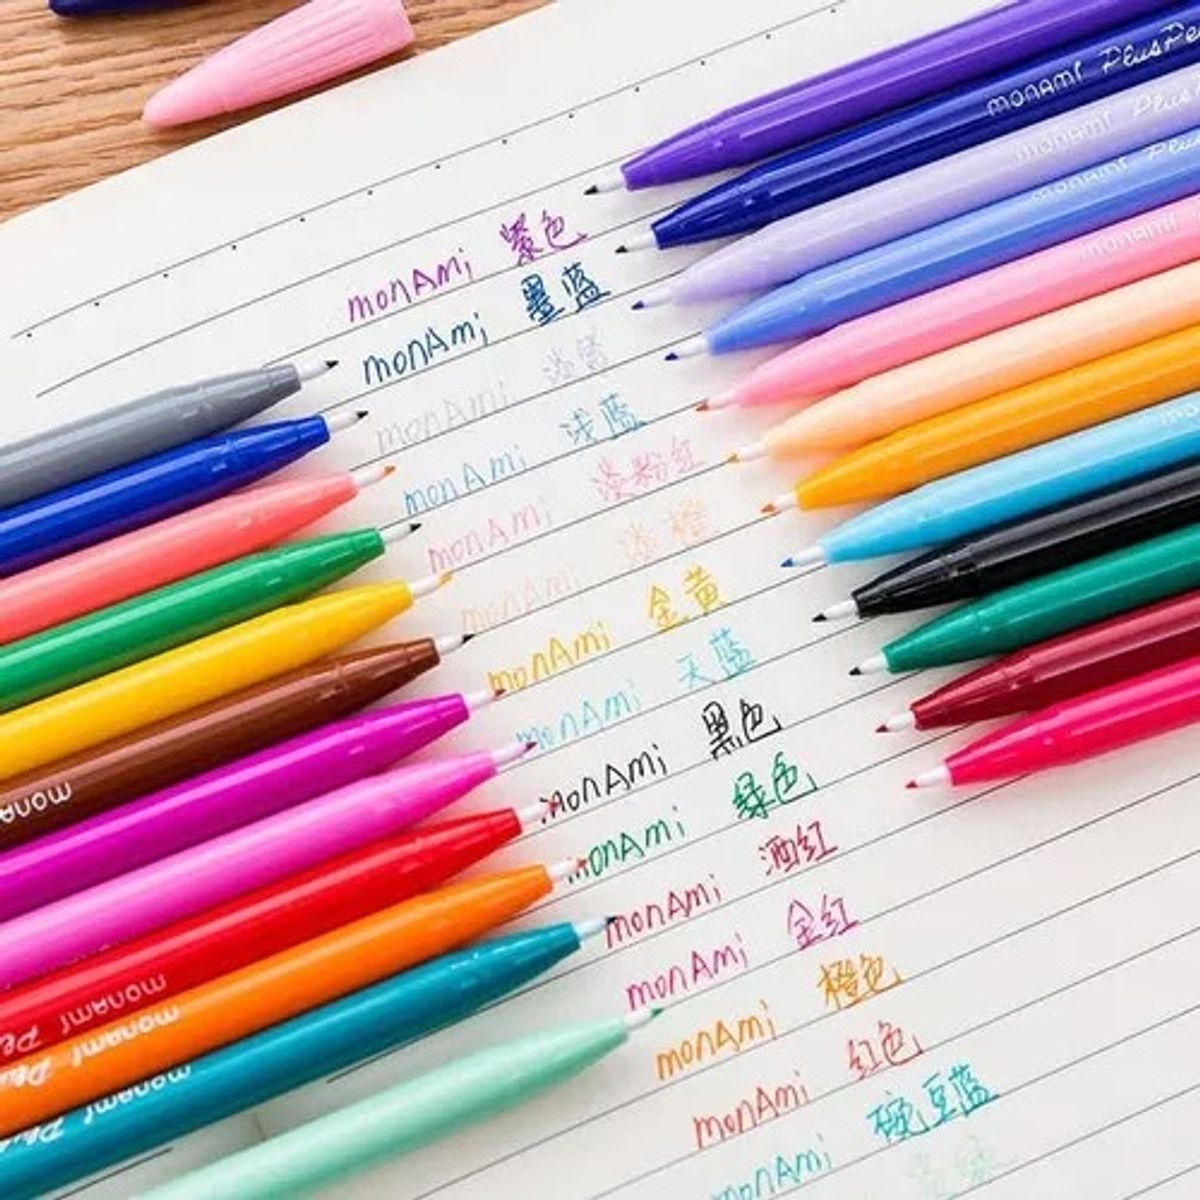 monAmi PlusPe
monAmi Plus
monAmi Plus
monAmi
monAmi 紫色
monAmi 墨蓝
monAmi
monAmi 浅蓝
monAmi 淡粉红
monAmi 淡橙
monAmi 金黄
monAmi 天蓝
monAmi 黑色
monAmi 绿色
monAmi 酒红
monAmi 金红
monAmi 橙色
monAmi 红色
monAmi 碗豆蓝
monA
monAmi Pe
monAmi Plu
monAmi Plu